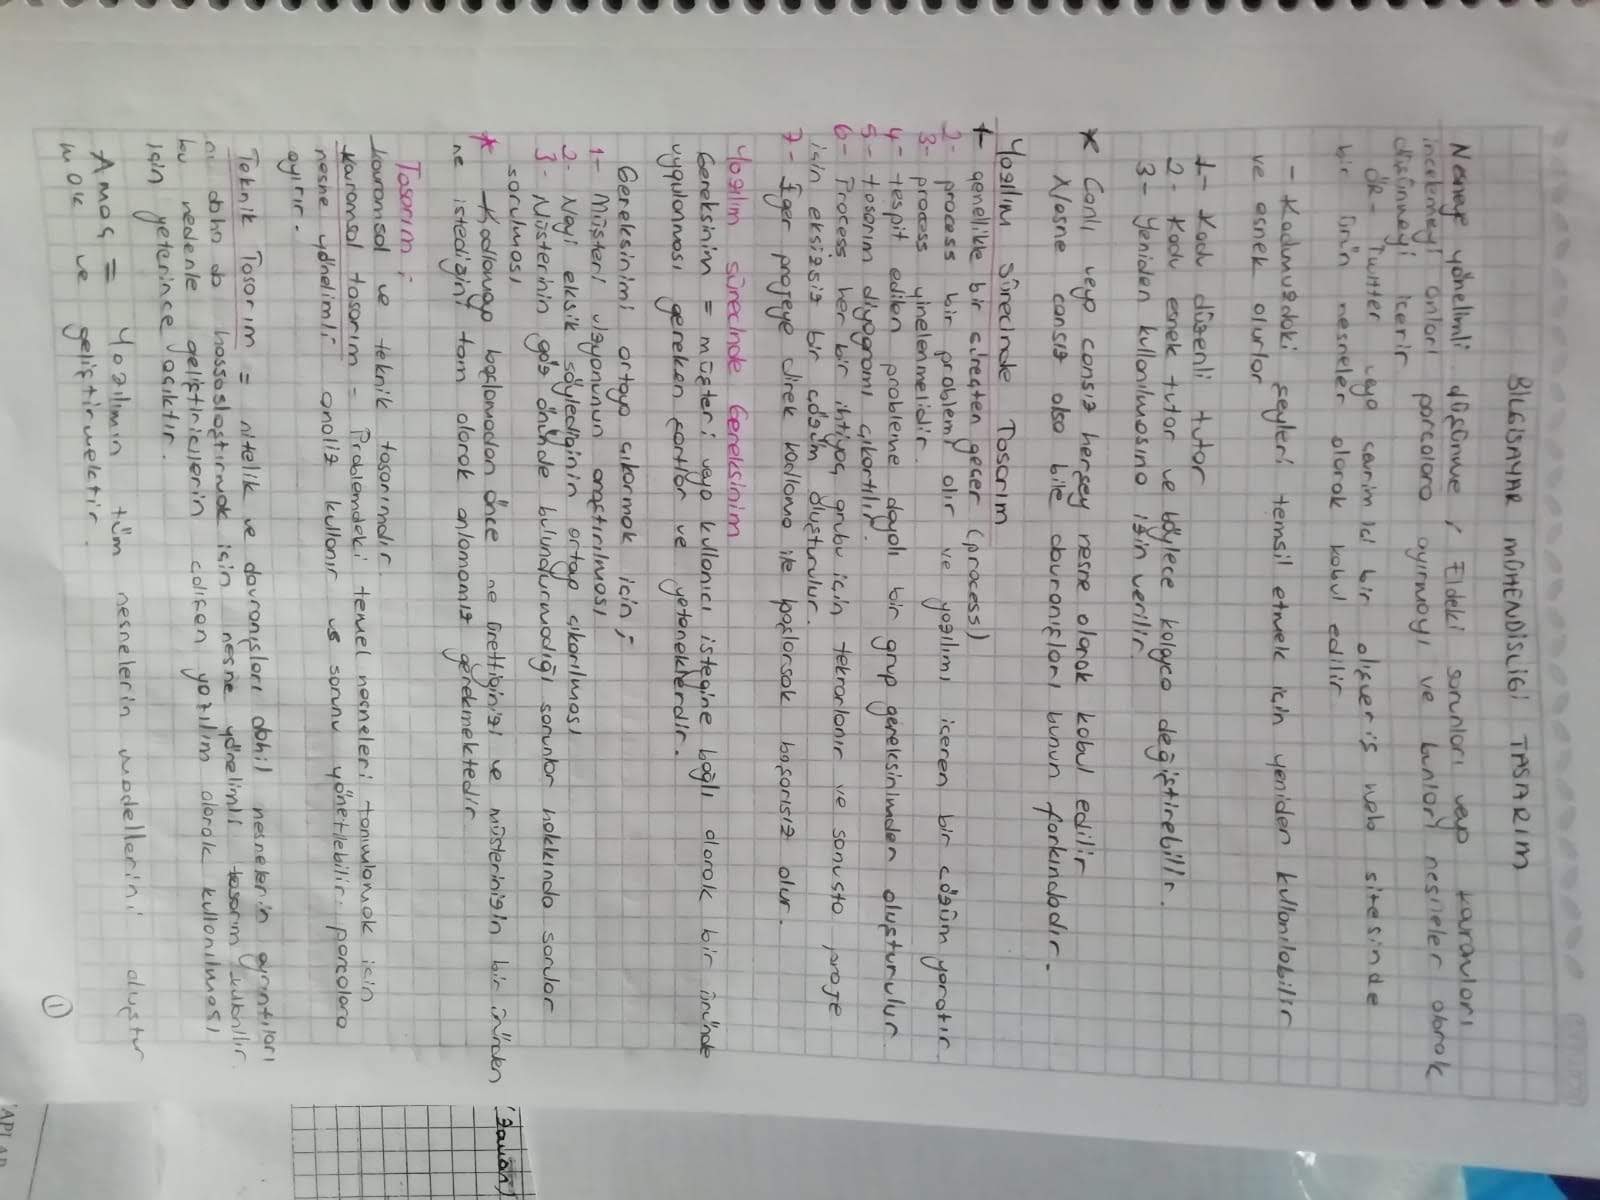 BİLGİSAYAR MÜHENDİSLİĞİ TASARIM
Nesneye yönelimli düşünme ; Eldeki sorunları veya kavramları
incelemeyi onları parcalara ayırmayı ve bunları nesneler olarak
düşünmeyi icerir
ÖR- Twitter veya canim ici bir alışveris web sitesinde
bir ürün nesneler olarak kabul edilir
- Kodumuzdaki şeyleri temsil etmek için yeniden kullanılabilir
ve esnek olurlar
1- Kodu düzenli tutar
2- Kodu esnek tutar ve böylece kolayca değiştirebilir.
3- Yeniden kullanılmasına izin verilir.
* Canlı veya cansız herşey nesne olarak kabul edilir
Nesne cansız olsa bile davranışları bunun farkındadır.
Yazılım Sürecinde Tasarım
1- genellikle bir süreçten geçer (process)
2- process bir problemi alır ve yazılımı iceren bir cözüm yaratır
3- process yinelenmelidir.
4- tespit edilen probleme dayalı bir grup gereksinimden oluşturulur
5- tasarım diyagramı çıkartılır.
6- Process her bir ihtiyaç grubu için tekrarlanır ve sonusta proje
için eksizsiz bir cözüm oluşturulur.
7- Eger projeye direk kodlama ile başlarsak başarısız olur.
Yazılım sürecinde Gereksinim
Gereksinim = müşteri veya kullanıcı istegine bağlı olarak bir üründe
uygulanması gereken şartlar ve yeteneklerdir.
Gereksinimi ortaya cıkarmak icin;
1- Müsteri vizyonunun araştırılması
2- Neyi eksik söylediginin ortap cıkarılması
3- Müsterinin göz önünde bulundurmadığı sorunlar hakkında sorular
sorulması
* Kodlamaya başlamadan önce ne ürettiginizi ve müsterinizin bir üründen
ne istediğini tam olarak anlamamız gerekmektedir
Tasarım ;
kavramsal ve teknik tasarımdır.
kavramsal tasarım = Problemdeki temel nesneleri tanımlamak icin
nesne yönelimli analiz kullanır ve sorunu yönetilebilir parcalara
ayırır.
Teknik Tasarım = nitelik ve davranışları dahil nesnelerin ayrıntıları
nı daha da hassaslaştırmak icin nesne yönelimli tasarım kullanılır.
bu nedenle geliştiricilerin calışan yazılım olarak kullanılması
için yeterince açıktır.
Amaç = Yazılımın tüm nesnelerin modellerini oluştur
mak ve geliştirmektir.
1